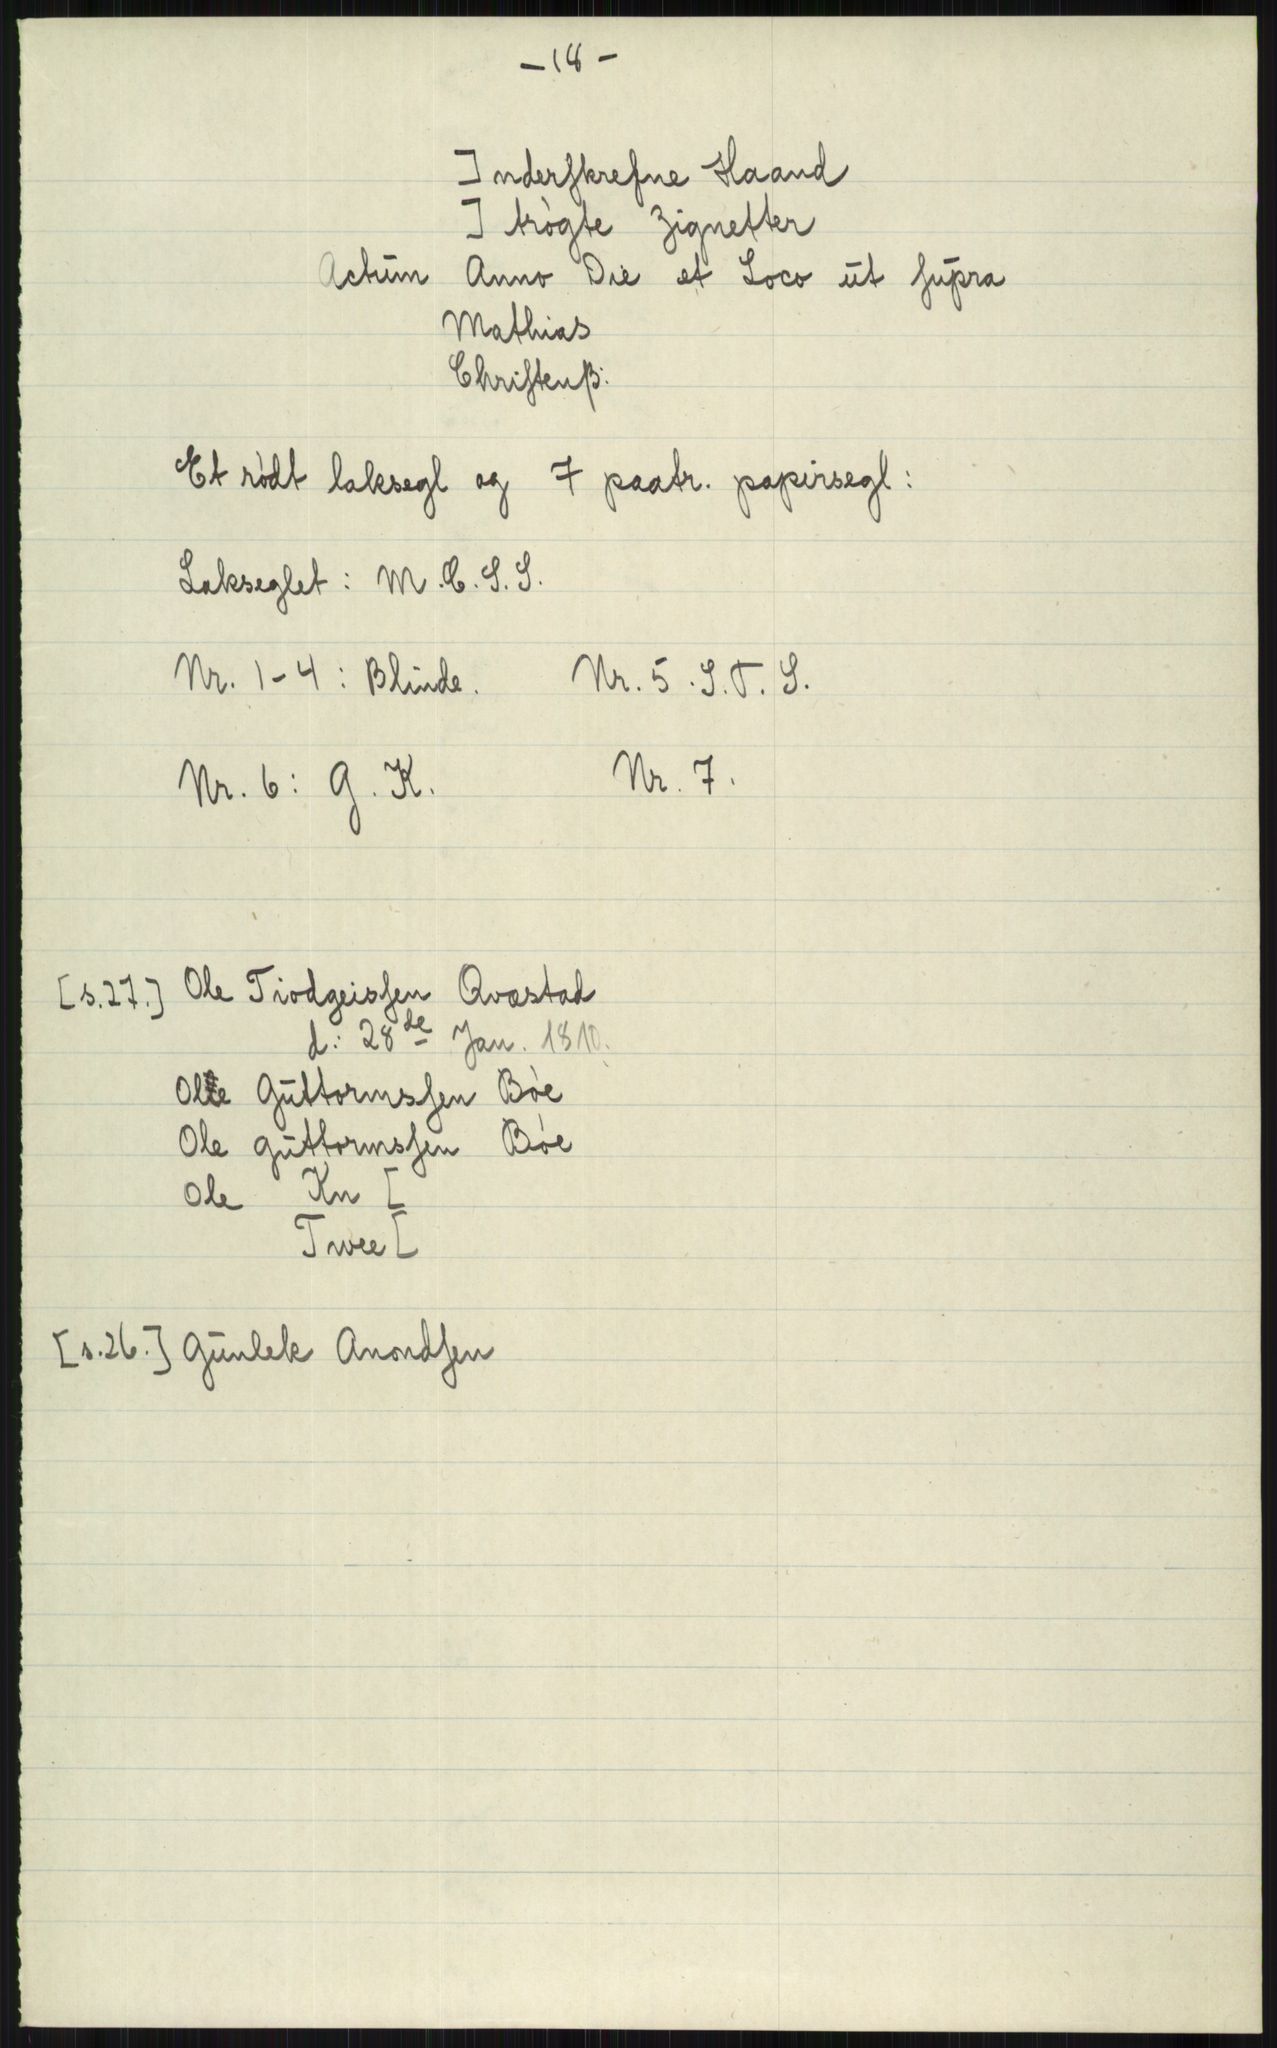 - 18 -
] nderſkrefne Haand
] trøgte Zignetter
Actūm Anno Die et Loco ūt ſūpra
Mathias
Chriſtenſz:
Et rødt laksegl og 7 paatr. papirsegl:
Lakseglet: M.C.S.S.
Nr. 1-4: Blinde. Nr. 5. S.T.S.
Nr. 6: G.K. Nr. 7.
[s.27.] Ole Tiodgeisſen Qvæstad
d: 28de Jan. 1810.
Ole Gūttormsſen Bøe
Ole gūttormsſen Bøe
Ole Kn [
Twee [
[s.26.] Gūnlek Anondſen